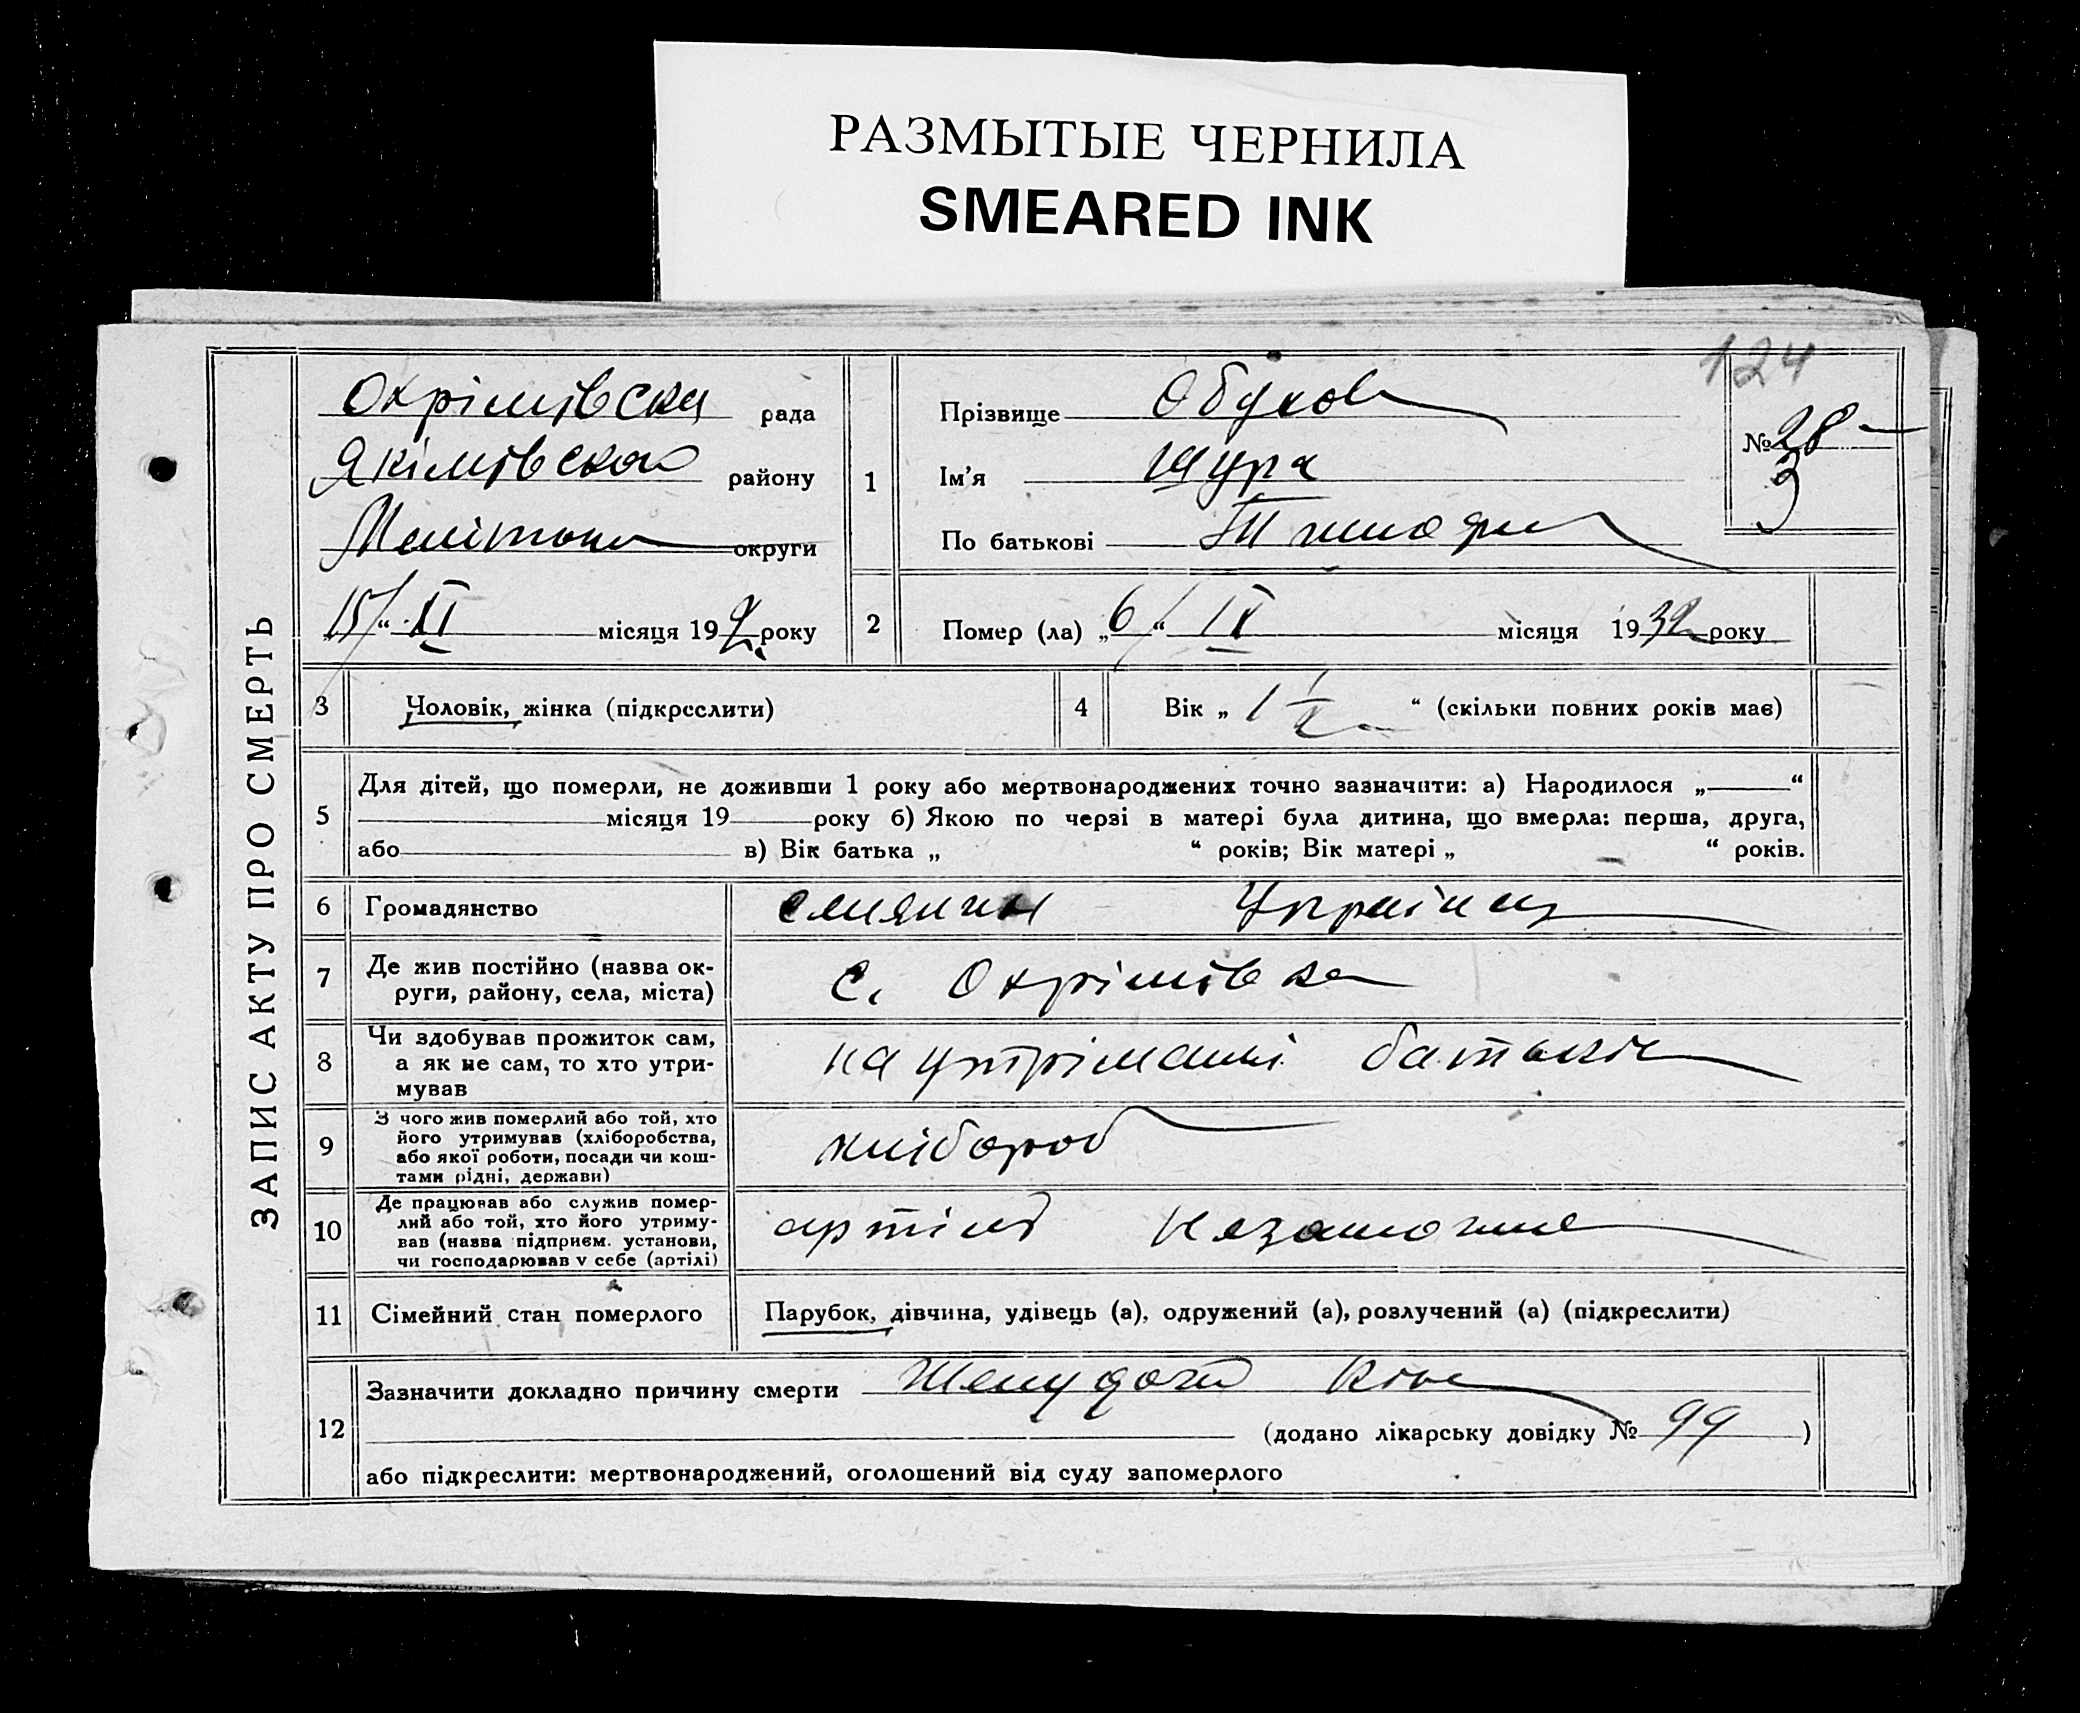 РАЗМЫТЫЕ ЧЕРНИЛА
SMEARED INK
124
ЗАПИС АКТУ ПРО СМЕРТЬ
Охрімівська рада
Якімівського району
Мелітоп округи
„15/“ XI місяця 192 року
1
Прізвище Обухов
Ім'я Шура
По батькові
№ 28
3
2
Помер (ла) „6/“ IX місяця 1932 року
3
Чоловік, жінка (підкреслити)
4
Вік „ 1 1/2 “ (скільки повних років має)
5
Для дітей, що померли, не доживши 1 року або мертвонароджених точно зазначити: а) Народилося „ “
місяця 19 року б) Якою по черзі в матері була дитина, що вмерла: перша, друга,
або в) Вік батька „ “ років; Вік матері „ “ років.
6
Громадянство
селянин Українец
7
Де жив постійно (назва ок-
руги, району, села, міста)
с. Охрімівка
8
Чи здобував прожиток сам,
а як не сам, то хто утри-
мував
на утріманні батьків
9
З чого жив померлий або той, хто
його утримував (хліборобства,
або якої роботи, посади чи кош-
тами рідні, держави)
хлібороб
10
Де працював або служив помер-
лий або той, хто його утриму-
вав (назва підприєм. установи,
чи господарював у себе (артілі)
артіль Незаможне
11
Сімейний стан померлого
Парубок, дівчина, удівець (а), одружений (а), розлучений (а) (підкреслити)
12
Зазначити докладно причину смерти
(додано лікарську довідку № 99 )
або підкреслити: мертвонароджений, оголошений від суду запомерлого